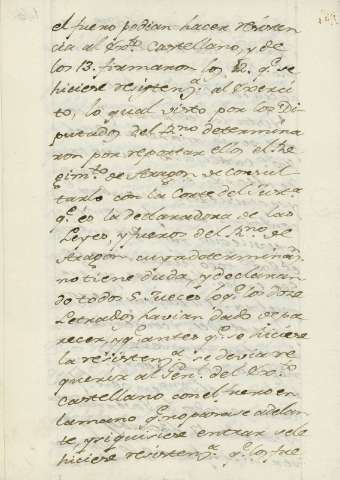 el fuero podian hacer resisten
cia al Exto. Castellano, y de
los 13. firmaron los 12. qe. se
hiciese resistena. al Exerci
to, lo qual visto por los Di
putados del Rno. determina
ron por reportar ellos el Re
gimto. de Aragon se consul
tarlo con la Corte del Justa
qe. es la declaradora de las
Leyes, y fueros del Rno. de
Aragon, cuya determinan.
no tiene duda, y declaran
do todos 5. Jueces lo qe. los doze
Letrados havian dado de pa
recer, y qe. antes qe. se hiciese
la resistena. se devia re
querir al Genl. del Exto.
Castellano con el fuero en
la mano qe. no parase adelan
te, y si quisiese entrar se le
hiciese resistena. qe. los fue